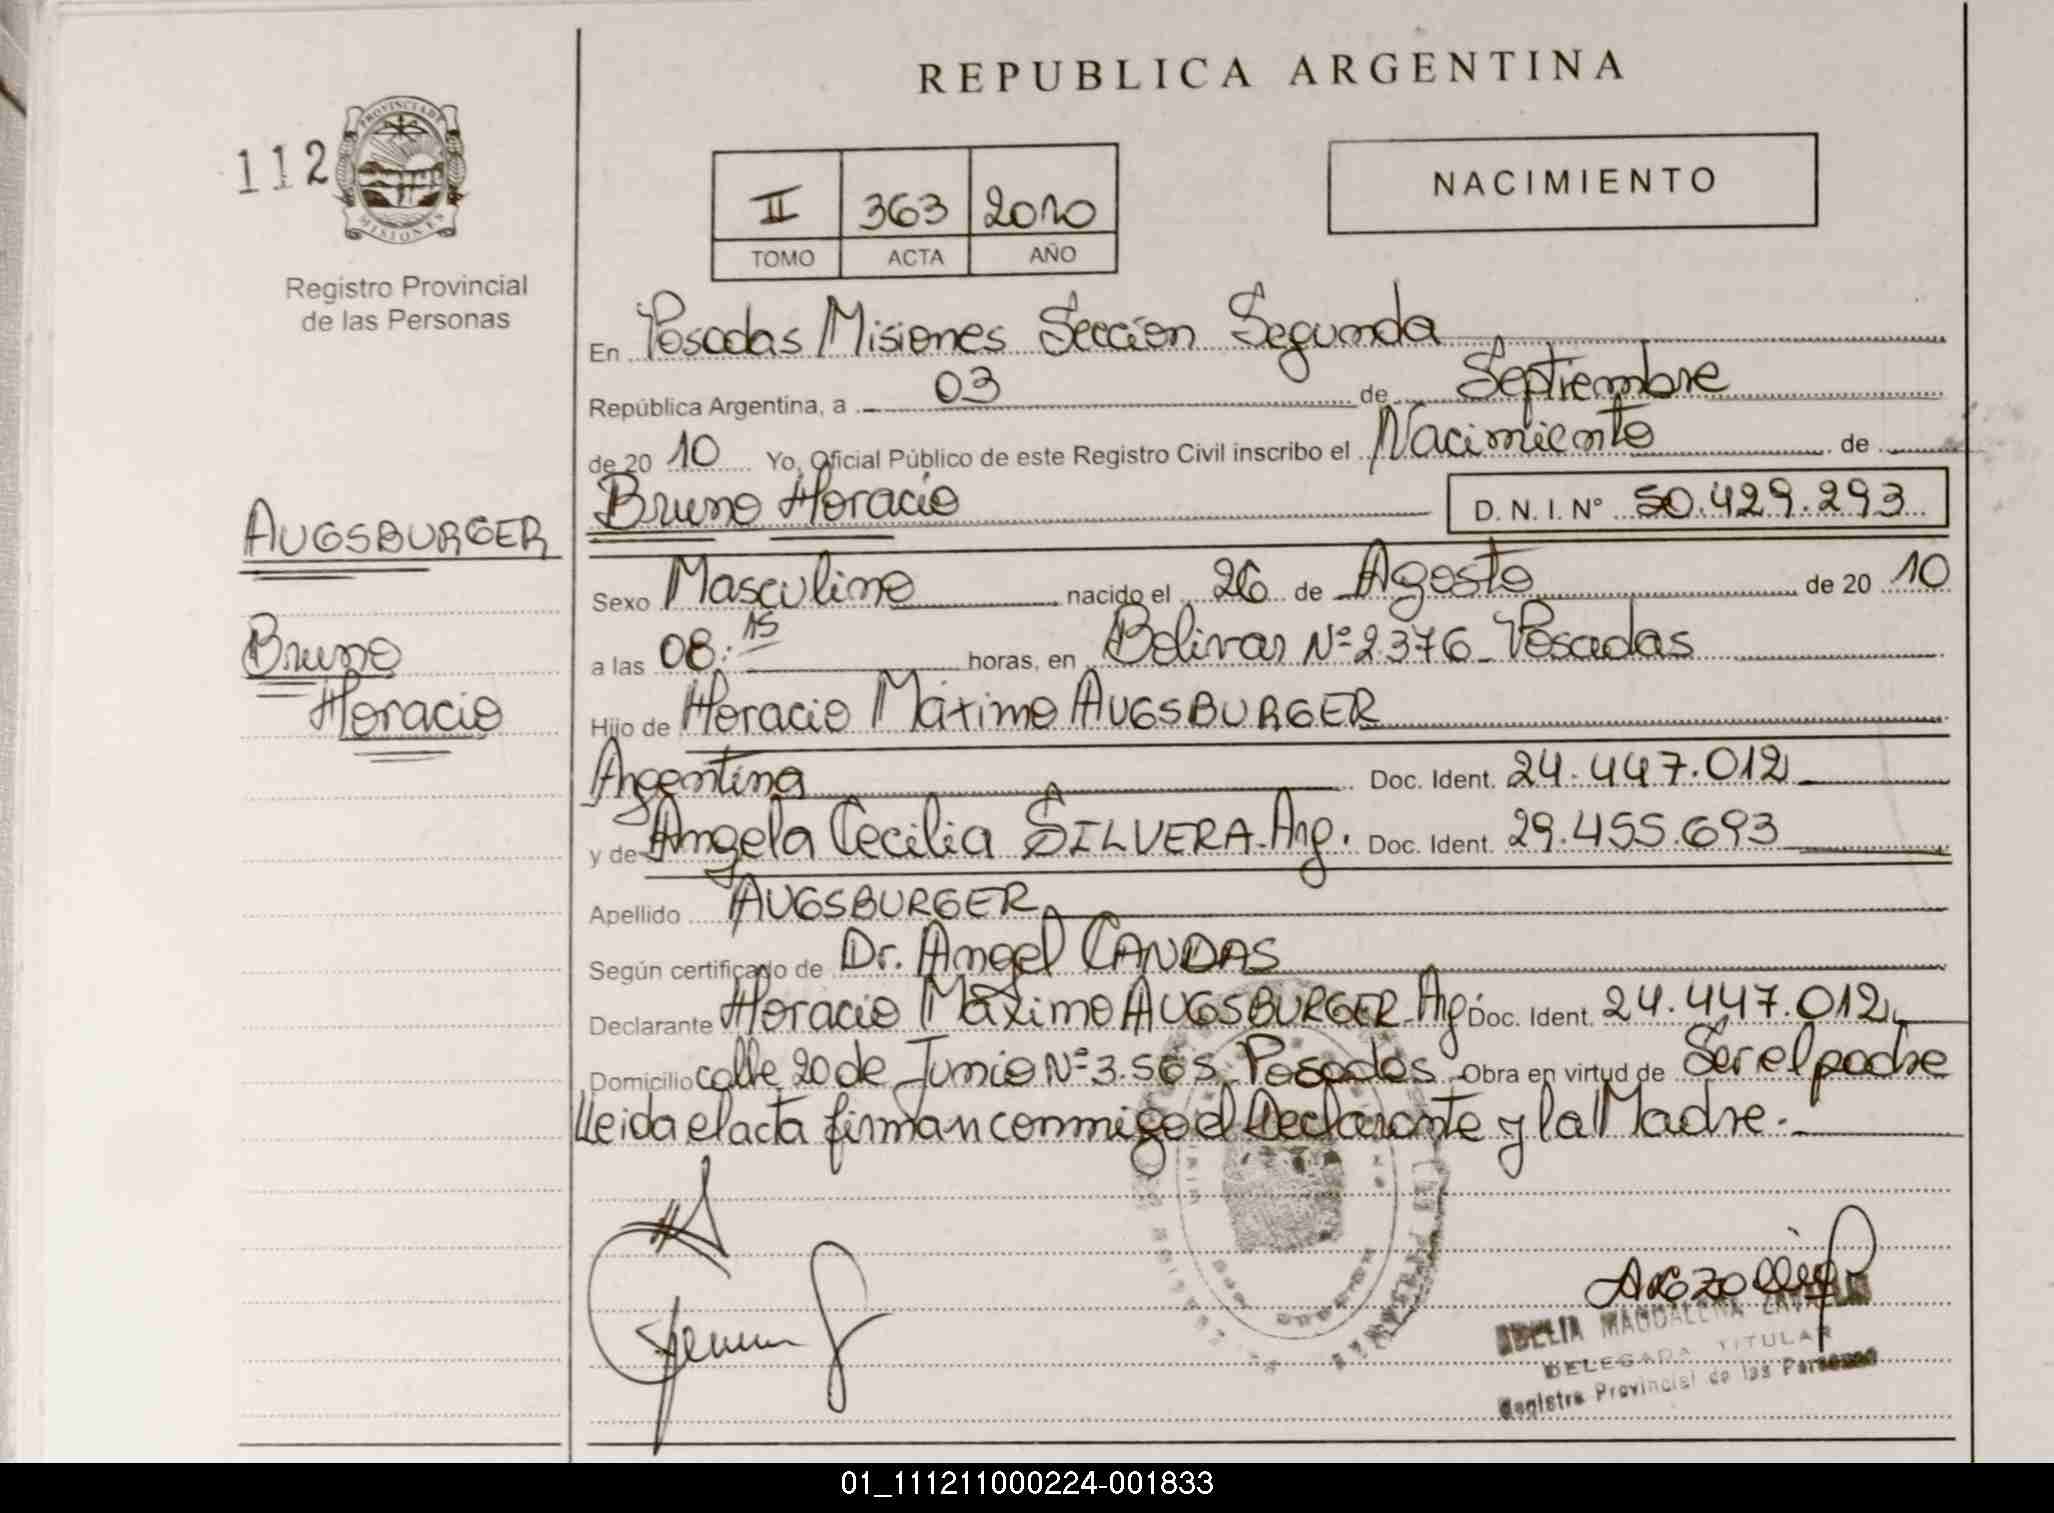 REPUBLICA ARGENTINA
112
PROVINCIA DE
MISIONES
Registro Provincial
de las Personas
II 363 2010
TOMO ACTA AÑO
NACIMIENTO
En Posadas Misiones Sección Segunda
República Argentina, a 03 de Septiembre
de 20 10 Yo, Oficial Público de este Registro Civil inscribo el Nacimiento de
Bruno Horacio D. N. I. Nº 50.429.293
AUGSBURGER
Bruno
Horacio
Sexo Masculino nacido el 26 de Agosto de 20 10
a las 08:15 horas, en Bolivar Nº 2.376 Posadas
Hijo de Horacio Máximo AUGSBURGER
Argentina Doc. Ident. 24.447.012
y de Angela Cecilia SILVERA - Arg. Doc. Ident. 29.455.693
Apellido AUGSBURGER
Según certificado de Dr. Angel CANDAS
Declarante Horacio Máximo AUGSBURGER - Arg. Doc. Ident. 24.447.012
Domicilio calle 20 de Junio Nº 3.565 Posadas Obra en virtud de Ser el padre
Leida el acta firman conmigo el Declarante y la Madre.-
MAGDALENA
DELEGADA TITULAR
Registro Provincial de las Personas
01_111211000224-001833